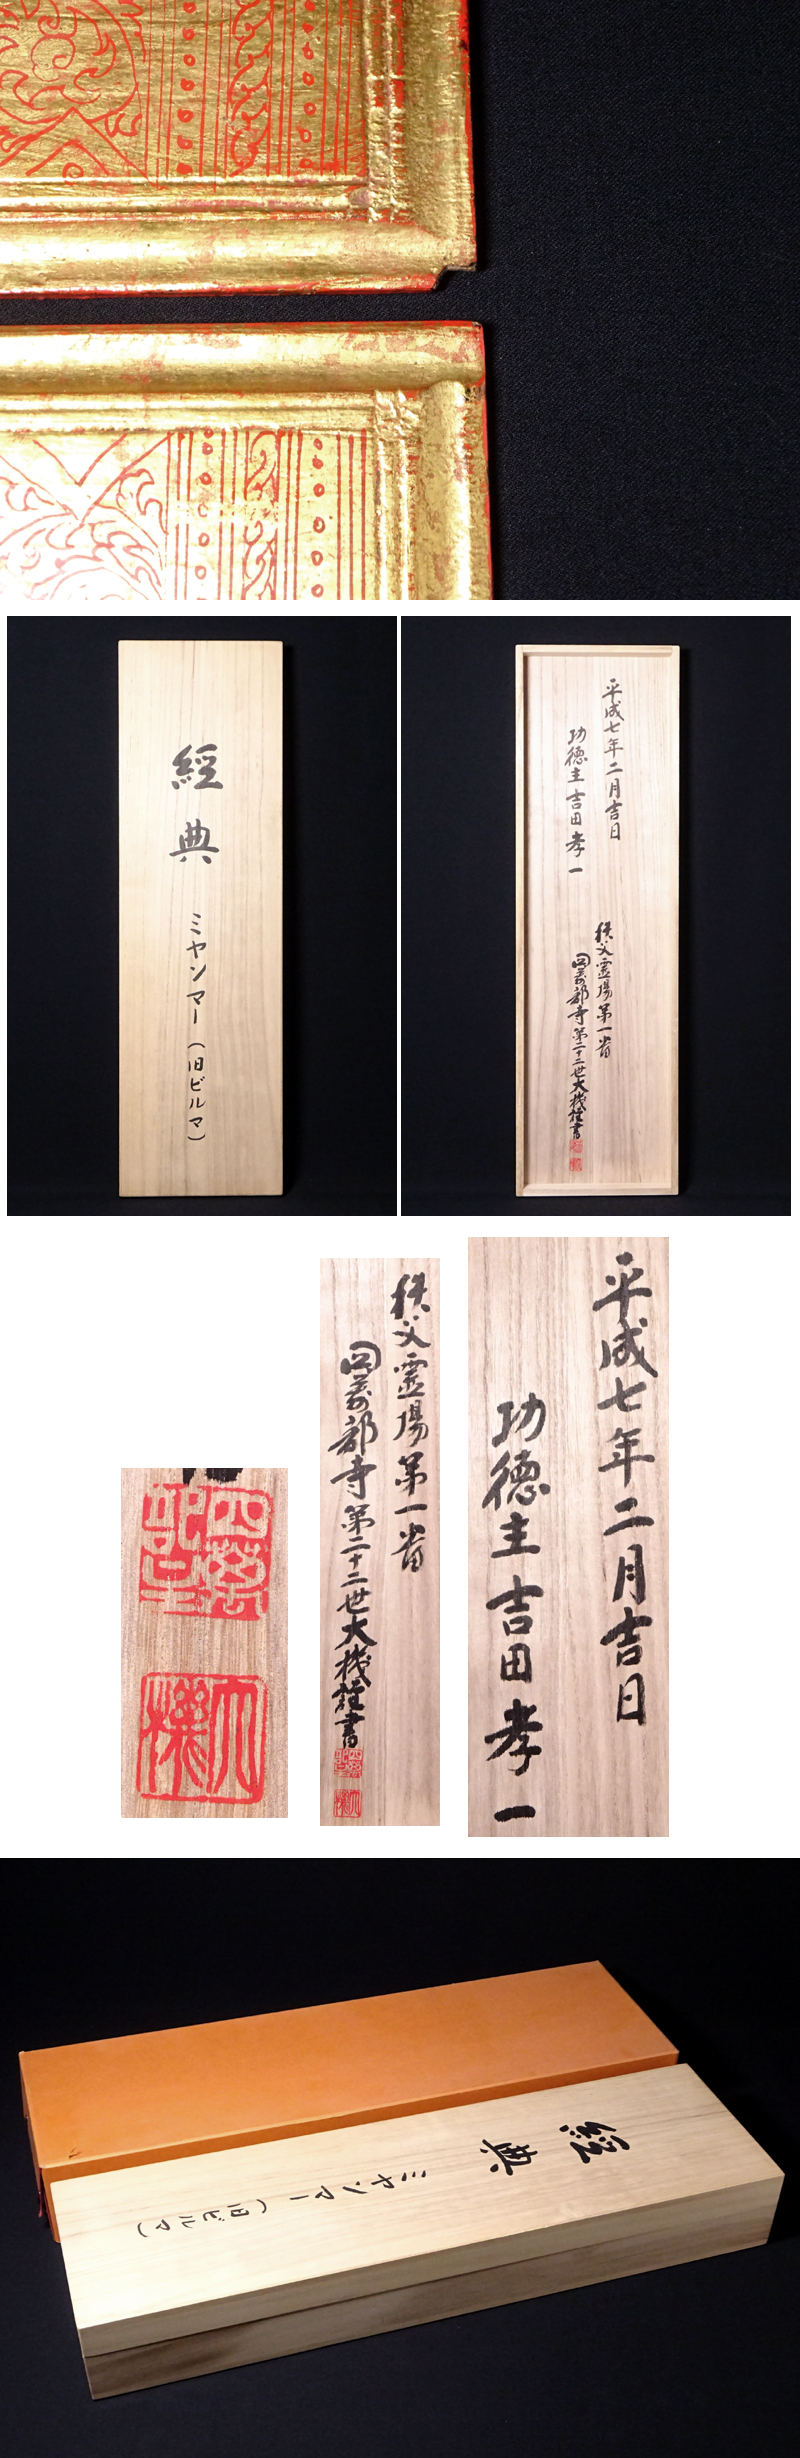 經典
ミヤンマー(旧ビルマ)
平成七年二月吉日
功徳主吉田孝一
秩父霊場第一番
四萬部寺第二十二世大機 書
四萬
大機
秩父霊場第一番
四萬部寺第二十二世大機 書
四萬
大機
平成七年二月吉日
功徳主吉田孝一
經典
ミヤンマー(旧ビルマ)